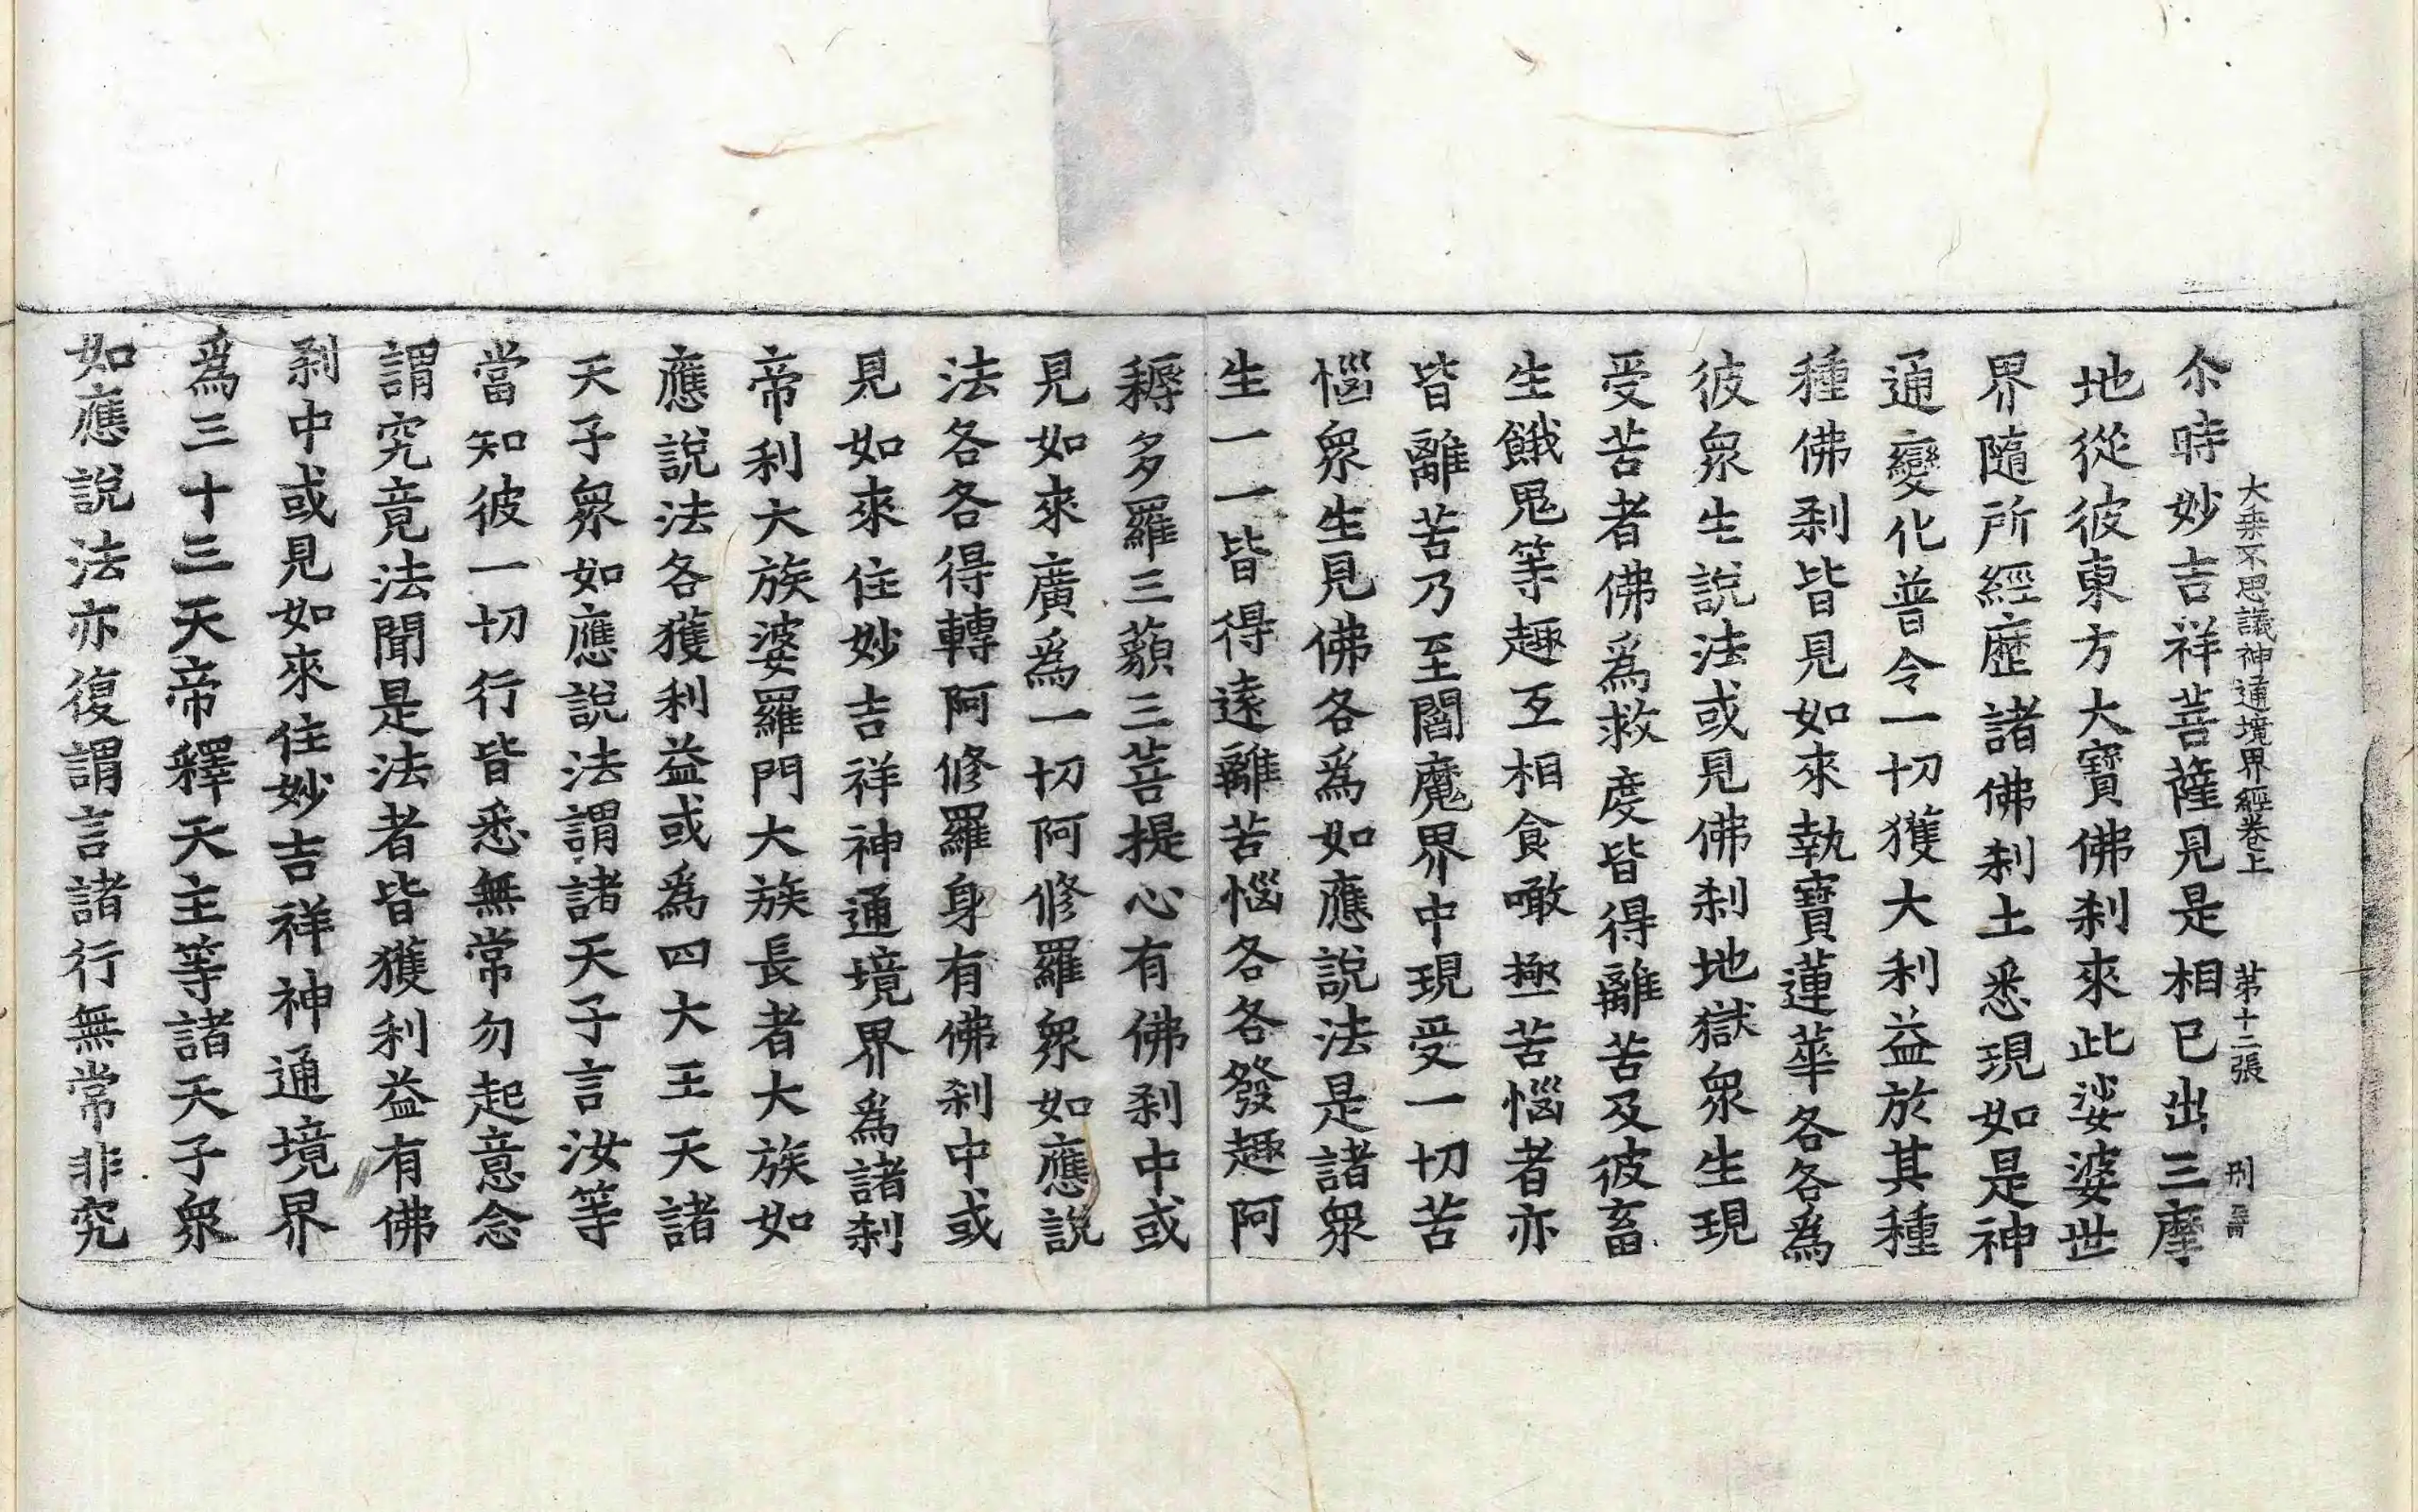 大乘不思議神通境界經卷上 第十二張 刑
尒時妙吉祥菩薩見是相已出三摩
地從彼東方大寶佛刹來此娑婆世
界隨所經歷諸佛刹土悉現如是神
通變化普令一切獲大利益於其種
種佛刹皆見如來執寶蓮華各各爲
彼衆生說法或見佛刹地獄衆生現
受苦者佛爲救度皆得離苦及彼畜
生餓鬼等趣互相食噉極苦惱者亦
皆離苦乃至閻魔界中現受一切苦
惱衆生見佛各爲如應說法是諸衆
生一一皆得遠離苦惱各各發趣阿
耨多羅三藐三菩提心有佛刹中或
見如來廣爲一切阿修羅衆如應說
法各各得轉阿修羅身有佛刹中或
見如來住妙吉祥神通境界爲諸刹
帝利大族婆羅門大族長者大族如
應說法各獲利益或爲四大王天諸
天子衆如應說法謂諸天子言汝等
當知彼一切行皆悉無常勿起意念
謂究竟法聞是法者皆獲利益有佛
刹中或見如來住妙吉祥神通境界
爲三十三天帝釋天主等諸天子衆
如應說法亦復謂言諸行無常非究